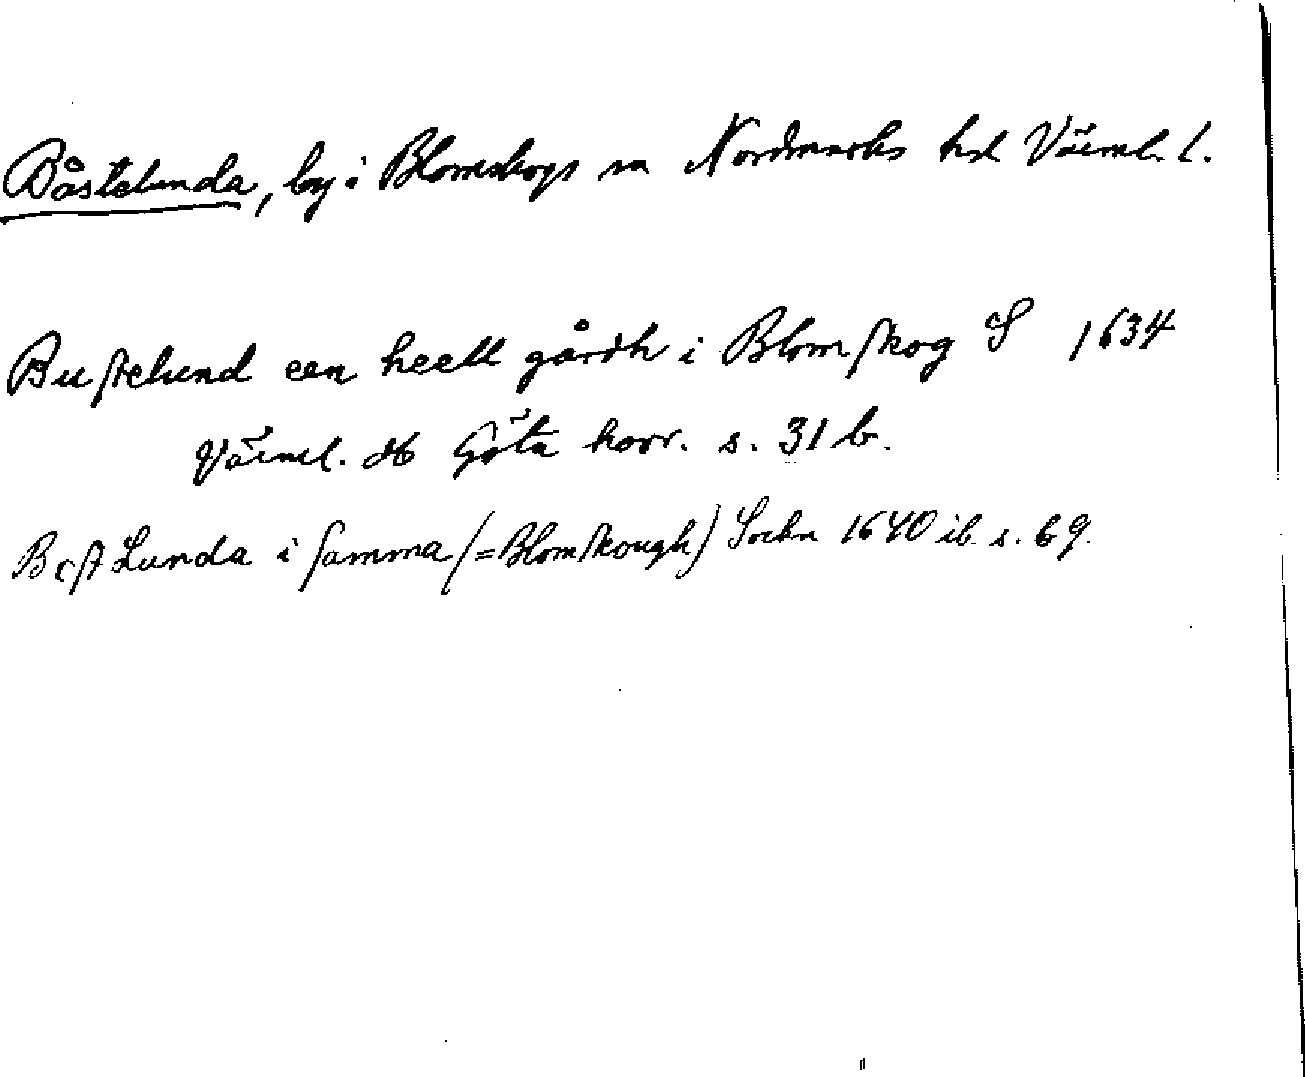 Båstelunda, by i Blomskogs sn Nordmarks hd Värml. l.
Bustelund een heell gårdh i Blomskog S 1634
Värml. db Göta hovr. s. 31 b.
Best Lunda i samma (=Blomskough) Sockn 1640 ib. s. 69.